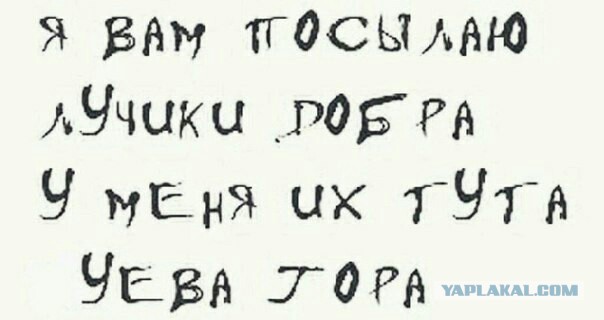 Я ВАМ ПОСЫЛАЮ
ЛУЧИКИ ДОБРА
У МЕНЯ ИХ ТУТА
УЕВА ГОРА
YAPLAKAL.COM